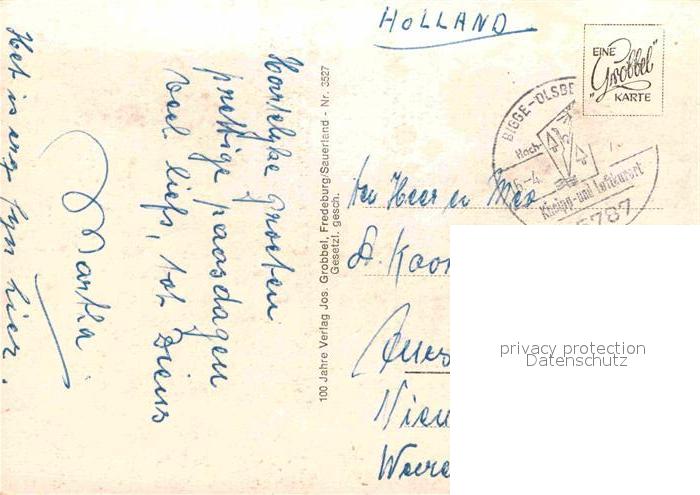 HOLLAND
EINE
"Grobbel"
KARTE
BIGGE-OLSBE
Hoch-
6-4
Kneipp- und Luftkurort
5787
Hartelyke groeten
prettige paasdagen
veel liefs, tot Diens
Martha
Het is erg fyn hier.
100 Jahre Verlag Jos. Grobbel, Fredeburg/Sauerland - Nr. 3527
Gesetzl. gesch.
den Heer en Mev
D. Koo
Nieu
privacy protection
Datenschutz